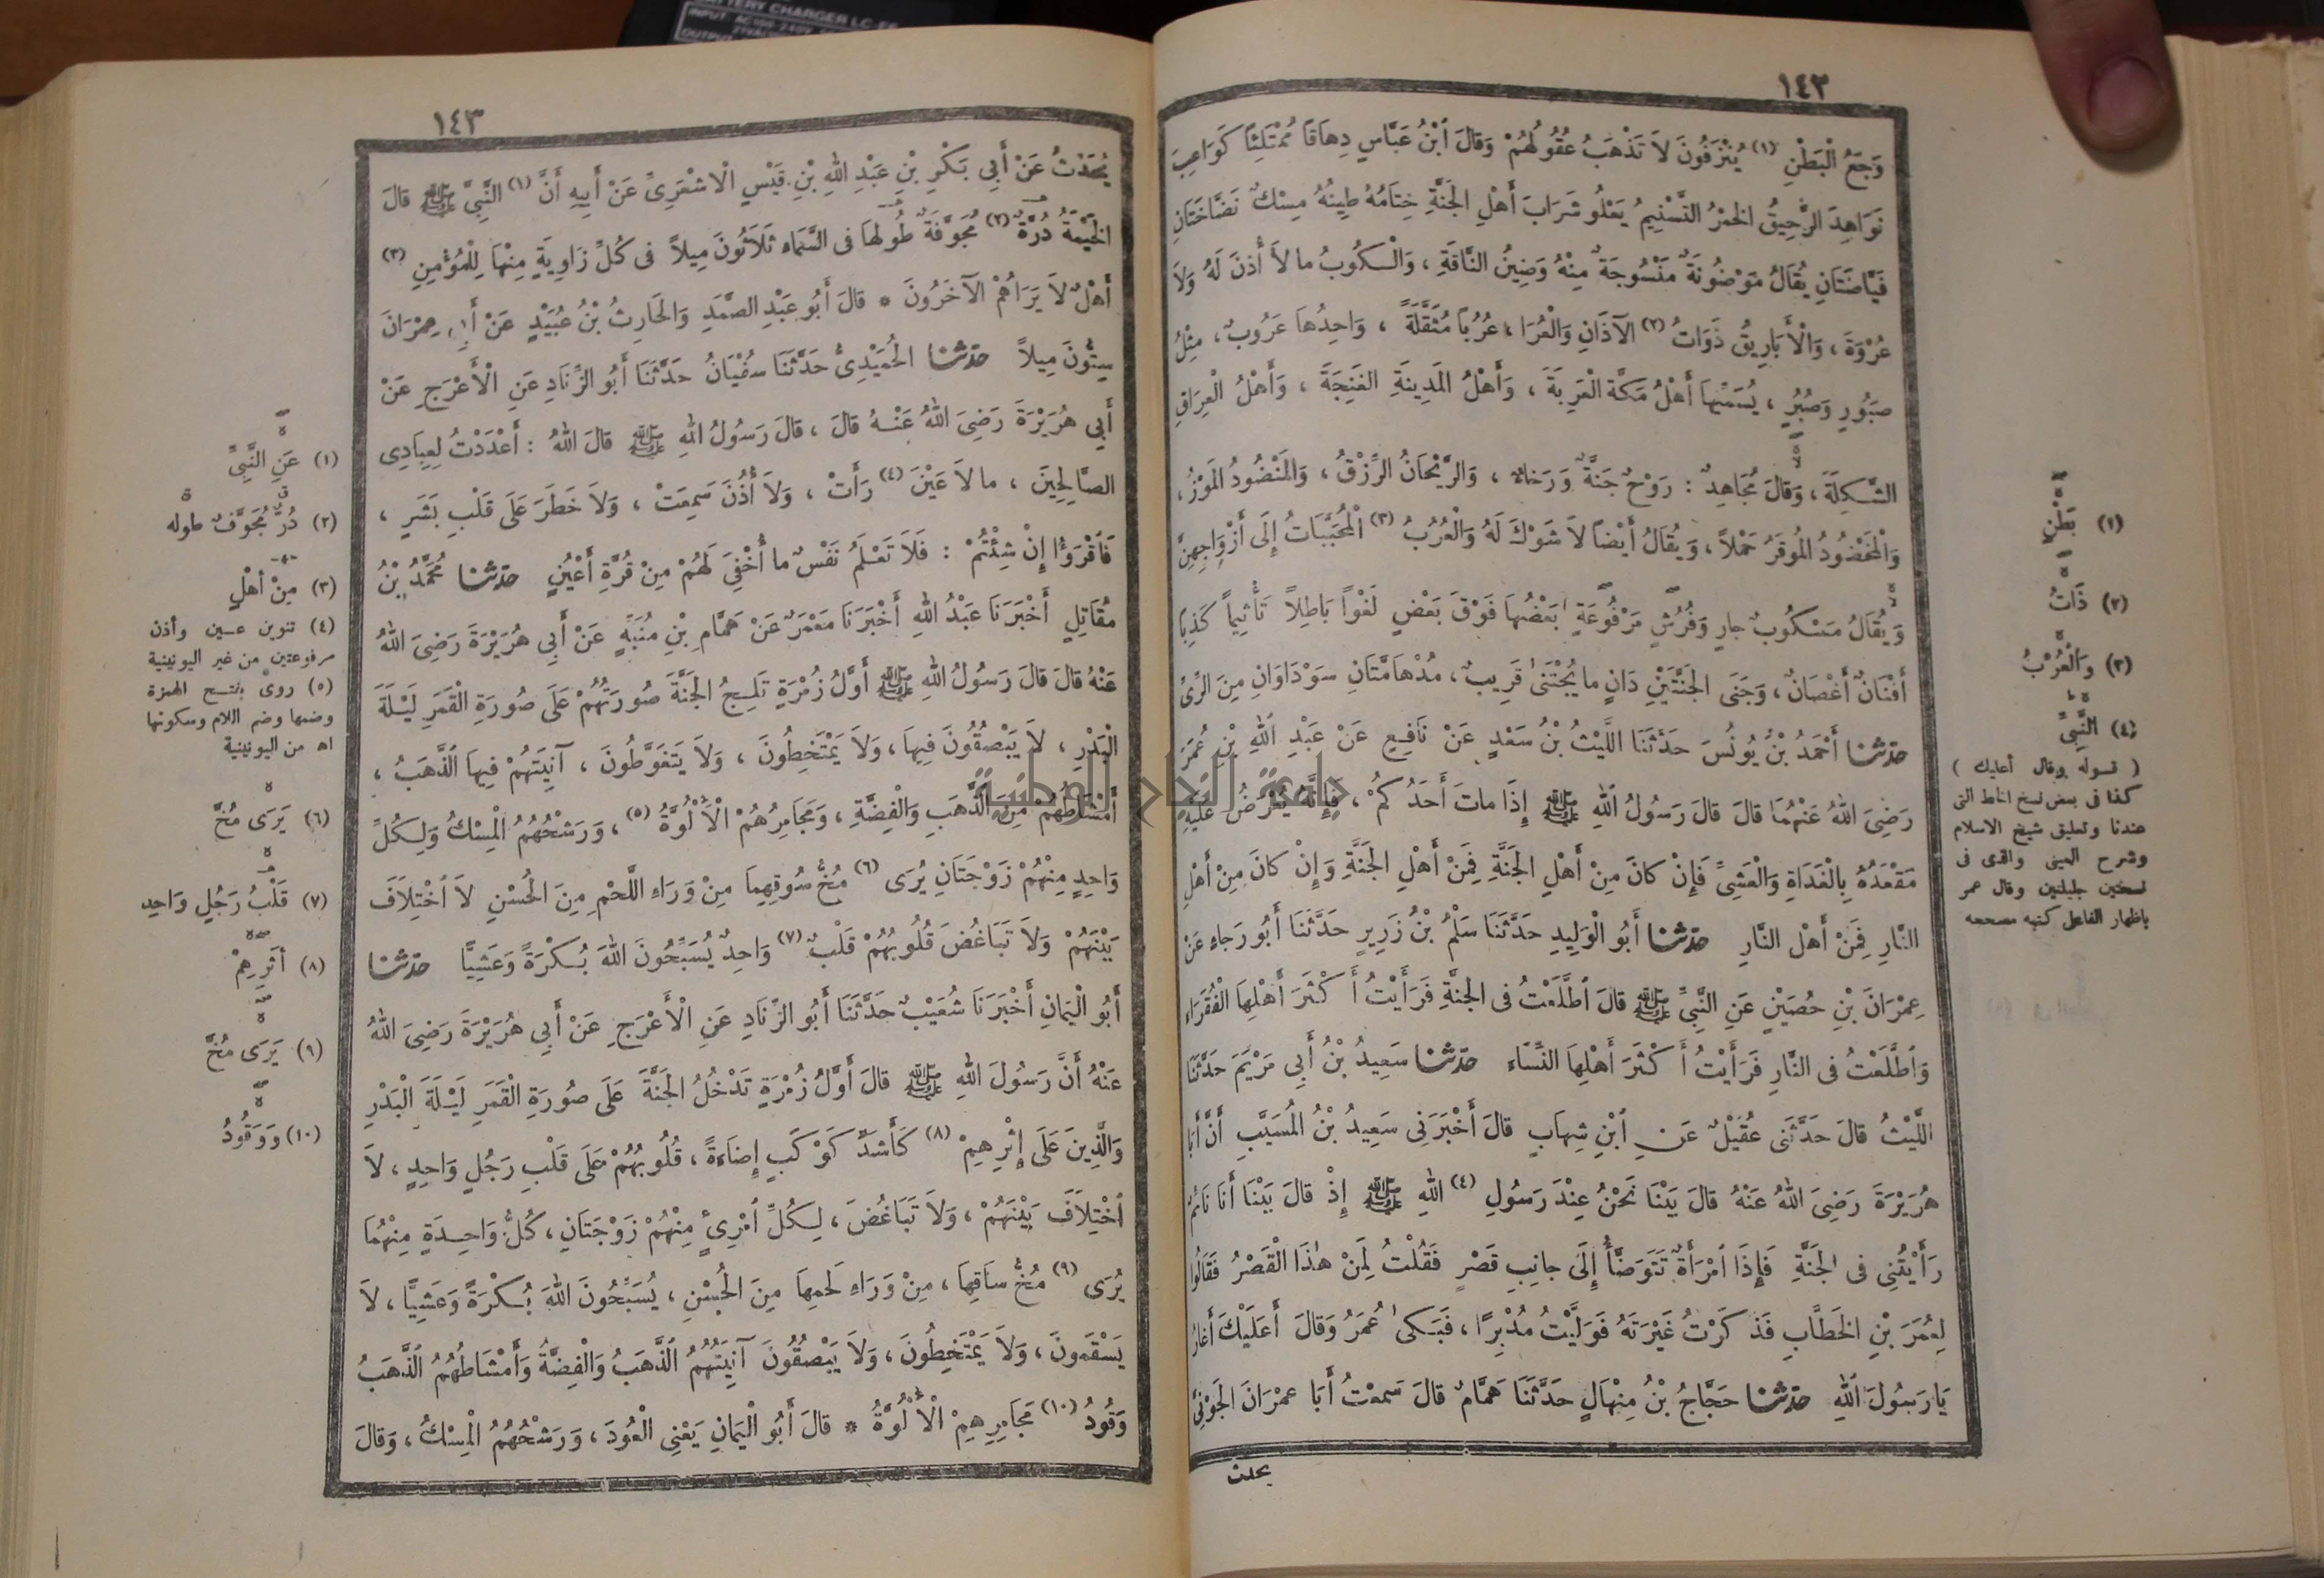 BATTERY CHARGER LC-E6
INPUT AC100-240V
OUTPUT
١٤٣
وَجَعُ الْبَطْنِ (١) يُنْزَفُونَ لاَ تَذْهَبُ عُقُولُهُمْ وَقالَ ٱبْنُ عَبَّاسٍ دِهاَقاً مُمْتَلِئاً كَوَاعِبَ
نَوَاهِدَ الرَّحِيقُ الخَمْرُ التَّسْنِيمُ يَعْلُو شَرَابَ أَهْلِ الجَنَّةِ خِتَامُهُ طِينُهُ مِسْكٌ نَضَّاخَتَانِ
فَيَّاضَتَانِ يُقَالُ مَوْضُونَةٌ مَنْسُوجَةٌ مِنْهُ وَضِينُ النَّاقَةِ ، وَالْكُوبُ ما لاَ أُذنَ لَهُ وَلاَ
عُرْوَةَ ، وَالْأَبَارِيقُ ذَوَاتُ (٢) الآذَانِ وَالْعُرَا ، عُرُباً مُثَقَّلَةً ، وَاحِدُهاَ عَرُوبٌ ، مِثْلُ
صَبُورٍ وَصُبُرٍ ، يُسَمِّيهاَ أَهْلُ مَكَّةَ الْعَرِبَةَ ، وَأَهْلُ المَدِينَةِ الغَنِجَةَ ، وَأَهْلُ الْعِرَاقِ
الشَّكِلَةَ ، وَقالَ مُجَاهِدٌ : رَوْحٌ جَنَّةٌ وَرَخاءٌ ، وَالرَّيْحَانُ الرِّزْقُ ، وَالمَنْضُودُ المَوْزُ ،
وَالْمَخْضُودُ المُوقَرُ حَمْلاً ، وَيُقَالُ أَيْضاً لاَ شَوْكَ لَهُ وَالْعُرُبُ (٣) الْمُحَبَّبَاتُ إِلَى أَزْوَاجِهِنَّ
وَيُقَالُ مَسْكُوبٌ جارٍ وَفُرُشٍ مَرْفُوعَةٍ بَعْضُهاَ فَوْقَ بَعْضٍ لَغْواً بَاطِلاً تَأْثِيماً كَذِباً
أَفْنَانٌ أَغْصَانٌ ، وَجَنَى الجَنَّتَيْنِ دَانٍ ما يُجْتَنَى قَرِيبٌ ، مُدْهاَمَّتَانِ سَوْدَاوَانِ مِنَ الرِّىِّ
حدّثنا أَحْمَدُ بْنُ يُونُسَ حَدَّثَنَا اللَّيْثُ بْنُ سَعْدٍ عَنْ نَافِعٍ عَنْ عَبْدِ ٱللهِ بْنِ عُمَرَ
رَضِيَ اللهُ عَنْهُمَا قالَ قالَ رَسُولُ اللهِ ﷺ إِذَا ماتَ أَحَدُكُمْ ، فَإِنَّهُ يُعْرَضُ عَلَيْهِ
مَقْعَدُهُ بِالْغَدَاةِ وَالْعَشِىِّ فَإِنْ كانَ مِنْ أَهْلِ الجَنَّةِ فَمِنْ أَهْلِ الجَنَّةِ وَإِنْ كانَ مِنْ أَهْلِ
النَّارِ فَمَنْ أَهْلِ النَّارِ حدّثنا أَبُو الْوَلِيدِ حَدَّثَنَا سَلْمُ بْنُ زَرِيرٍ حَدَّثَنَا أَبُو رَجاءٍ عَنْ
عِمْرَانَ بْنِ حُصَيْنٍ عَنِ النَّبِىِّ ﷺ قالَ ٱطَّلَعْتُ فى الجنَّةِ فَرَأَيْتُ أَكْثَرَ أَهْلِهَا الْفُقَرَاءَ
وَٱطَّلَعْتُ فى النَّارِ فَرَأَيْتُ أَكْثَرَ أَهْلِهَا النِّسَاءَ حدّثنا سَعِيدُ بْنُ أَبِى مَرْيَمَ حَدَّثَنَا
اللَّيْثُ قالَ حَدَّثَنى عُقَيْلٌ عَنِ ٱبْنِ شِهاَبٍ قالَ أَخْبَرَنِى سَعِيدُ بْنُ المُسَيَّبِ أَنَّ أَبَا
هُرَيْرَةَ رَضِىَ اللهُ عَنْهُ قالَ بَيْنَا نَحْنُ عِنْدَ رَسُولِ (٤) اللهِ ﷺ إِذْ قالَ بَيْنَا أَنَا نَائمٌ
رَأَيْتُنِى فى الجَنَّةِ فَإِذَا ٱمْرَأَةٌ تَتَوَضَّأُ إِلَى جانِبِ قَصْرٍ فَقُلْتُ لِمَنْ هٰذَا الْقَصْرُ فَقَالُوا
لِعُمَرَ بْنِ الخَطَّابِ فَذَكَرْتُ غَيْرَتَهُ فَوَلَّيْتُ مُدْبِرًا ، فَبَكىٰ عُمَرُ وَقالَ أَعَلَيْكَ أَغارُ
يَا رَسُولَ ٱللهِ حدّثنا حَجَّاجُ بْنُ مِنْهاَلٍ حَدَّثَنَا هَمَّامٌ قالَ سَمِعْتُ أَبَا عمْرَانَ الجَوْنِىَّ
يحدث
(١) بَطْنٍ
(٢) ذَاتُ
(٣) وَالْعُرْبُ
(٤) النَّبِىِّ
( قوله وقال أعليك )
كذا فى بعض نسخ الخط التى
عندنا وتعليق شيخ الاسلام
وشرح العينى والذى فى
نسختين جليلتين وقال عمر
باظهار الفاعل كتبه مصححه
١٤٣
يُحَدِّثُ عَنْ أَبِى بَكْرِ بْنِ عَبْدِ اللهِ بْنِ قَيْسٍ الْاشْعَرِىِّ عَنْ أَبِيهِ أَنَّ (١) النَّبِىَّ ﷺ قالَ
الخَيْمَةُ دُرَّةٌ (٢) مُجَوَّفَةٌ طُولهاَ فى السَّمَاءِ ثَلاَثُونَ مِيلاً فى كُلِّ زَاوِيَةٍ مِنْهاَ لِلْمُؤْمِنِ (٣)
أَهْلٌ لاَ يَرَاهُمُ الآخَرُونَ * قالَ أَبُو عَبْدِ الصَّمَدِ وَالحَارِثُ بْنُ عُبَيْدٍ عَنْ أَبِى عِمْرَانَ
سِتُّونَ مِيلاً حدّثنا الحُمَيْدِىُّ حَدَّثَنَا سُفْيَانُ حَدَّثَنَا أَبُو الزِّنَادِ عَنِ الْأَعْرَجِ عَنْ
أَبِى هُرَيْرَةَ رَضِىَ اللهُ عَنْهُ قالَ ، قالَ رَسُولُ اللهِ ﷺ قالَ اللهُ : أَعْدَدْتُ لِعِبَادِى
الصَّالِحِينَ ، ما لاَ عَيْنَ (٤) رَأَتْ ، وَلاَ أُذُنَ سَمِعَتْ ، وَلاَ خَطَرَ عَلَى قَلْبِ بَشَرٍ ،
فَٱقْرَؤُا إِنْ شِئْتُمْ : فَلاَ تَعْلَمُ نَفْسٌ ما أُخْفِىَ لَهُمْ مِنْ قُرَّةِ أَعْيُنٍ حدّثنا مُحَمَّدُ بْنُ
مُقَاتِلٍ أَخْبَرَنَا عَبْدُ اللهِ أَخْبَرَنَا مَعْمَرٌ عَنْ هَمَّامِ بْنِ مُنَبِّهٍ عَنْ أَبِى هُرَيْرَةَ رَضِىَ اللهُ
عَنْهُ قالَ قالَ رَسُولُ اللهِ ﷺ أَوَّلُ زُمْرَةٍ تَلِجُ الجَنَّةَ صُورَتُهُمْ عَلَى صُورَةِ الْقَمَرِ لَيْلَةَ
الْبَدْرِ ، لاَ يَبْصُقُونَ فِيهاَ ، وَلاَ يَمْتَخِطُونَ ، وَلاَ يَتَغَوَّطُونَ ، آنِيَتُهُمْ فِيهَا الذَّهَبُ ،
أَمْشَاطُهُمْ مِنَ الذَّهَبِ وَالْفِضَّةِ ، وَمَجَامِرُهُمُ الْأَلُوَّةُ (٥) ، وَرَشْحُهُمُ الْمِسْكُ وَلِكُلِّ
وَاحِدٍ مِنْهُمْ زَوْجَتَانِ يُرَى (٦) مُخُّ سُوقِهِمَا مِنْ وَرَاءِ اللَّحْمِ مِنَ الحُسْنِ لاَ ٱخْتِلاَفَ
بَيْنَهُمْ وَلاَ تَبَاغُضَ قُلُوبُهُمْ قَلْبٌ (٧) وَاحِدٌ يُسَبِّحُونَ اللهَ بُكْرَةً وَعَشِيًّا حدّثنا
أَبُو الْيَمَانِ أَخْبَرَنَا شُعَيْبٌ حَدَّثَنَا أَبُو الزِّنَادِ عَنِ الْأَعْرَجِ عَنْ أَبِى هُرَيْرَةَ رَضِىَ اللهُ
عَنْهُ أَنَّ رَسُولَ اللهِ ﷺ قالَ أَوَّلُ زُمْرَةٍ تَدْخُلُ الجَنَّةَ عَلَى صُورَةِ الْقَمَرِ لَيْلَةَ الْبَدْرِ
وَالَّذِينَ عَلَى إِثْرِهِمْ (٨) كَأَشَدِّ كَوْكَبٍ إِضَاءَةً ، قُلُوبُهُمْ عَلَى قَلْبِ رَجُلٍ وَاحِدٍ ، لاَ
ٱخْتِلاَفَ بَيْنَهُمْ ، وَلاَ تَبَاغُضَ ، لِكُلِّ ٱمْرِىءٍ مِنْهُمْ زَوْجَتَانِ ، كُلُّ وَاحِدَةٍ مِنْهُمَا
يُرَى (٩) مُخُّ سَاقِهاَ ، مِنْ وَرَاءِ لَحْمِهاَ مِنَ الحُسْنِ ، يُسَبِّحُونَ اللهَ بُكْرَةً وَعَشِيًّا ، لاَ
يَسْقَمُونَ ، وَلاَ يَمْتَخِطُونَ ، وَلاَ يَبْصُقُونَ آنِيَتُهُمُ الذَّهَبُ وَالْفِضَّةُ وَأَمْشَاطُهُمُ الذَّهَبُ
وَقُودُ (١٠) مَجَامِرِهِمْ الْأَلُوَّةُ * قالَ أَبُو الْيَمَانِ يَعْنِى الْعُودَ ، وَرَشْحُهُمُ الْمِسْكُ ، وَقالَ
(١) عَنِ النَّبِىِّ
(٢) دُرٌّ مُجَوَّفٌ طوله
(٣) مِنْ أهْلٍ
(٤) تنوين عين وأذن
مرفوعتين من غير اليونينية
(٥) روى بفتح الهمزة
وضمها وضم اللام وسكونها
اه من اليونينية
(٦) يَرَى مُخَّ
(٧) قَلْبُ رَجُلٍ وَاحِدٍ
(٨) أثَرِهِمْ
(٩) يَرَى مُخَّ
(١٠) وَوَقُودُ
جامعة النجاح الوطنية